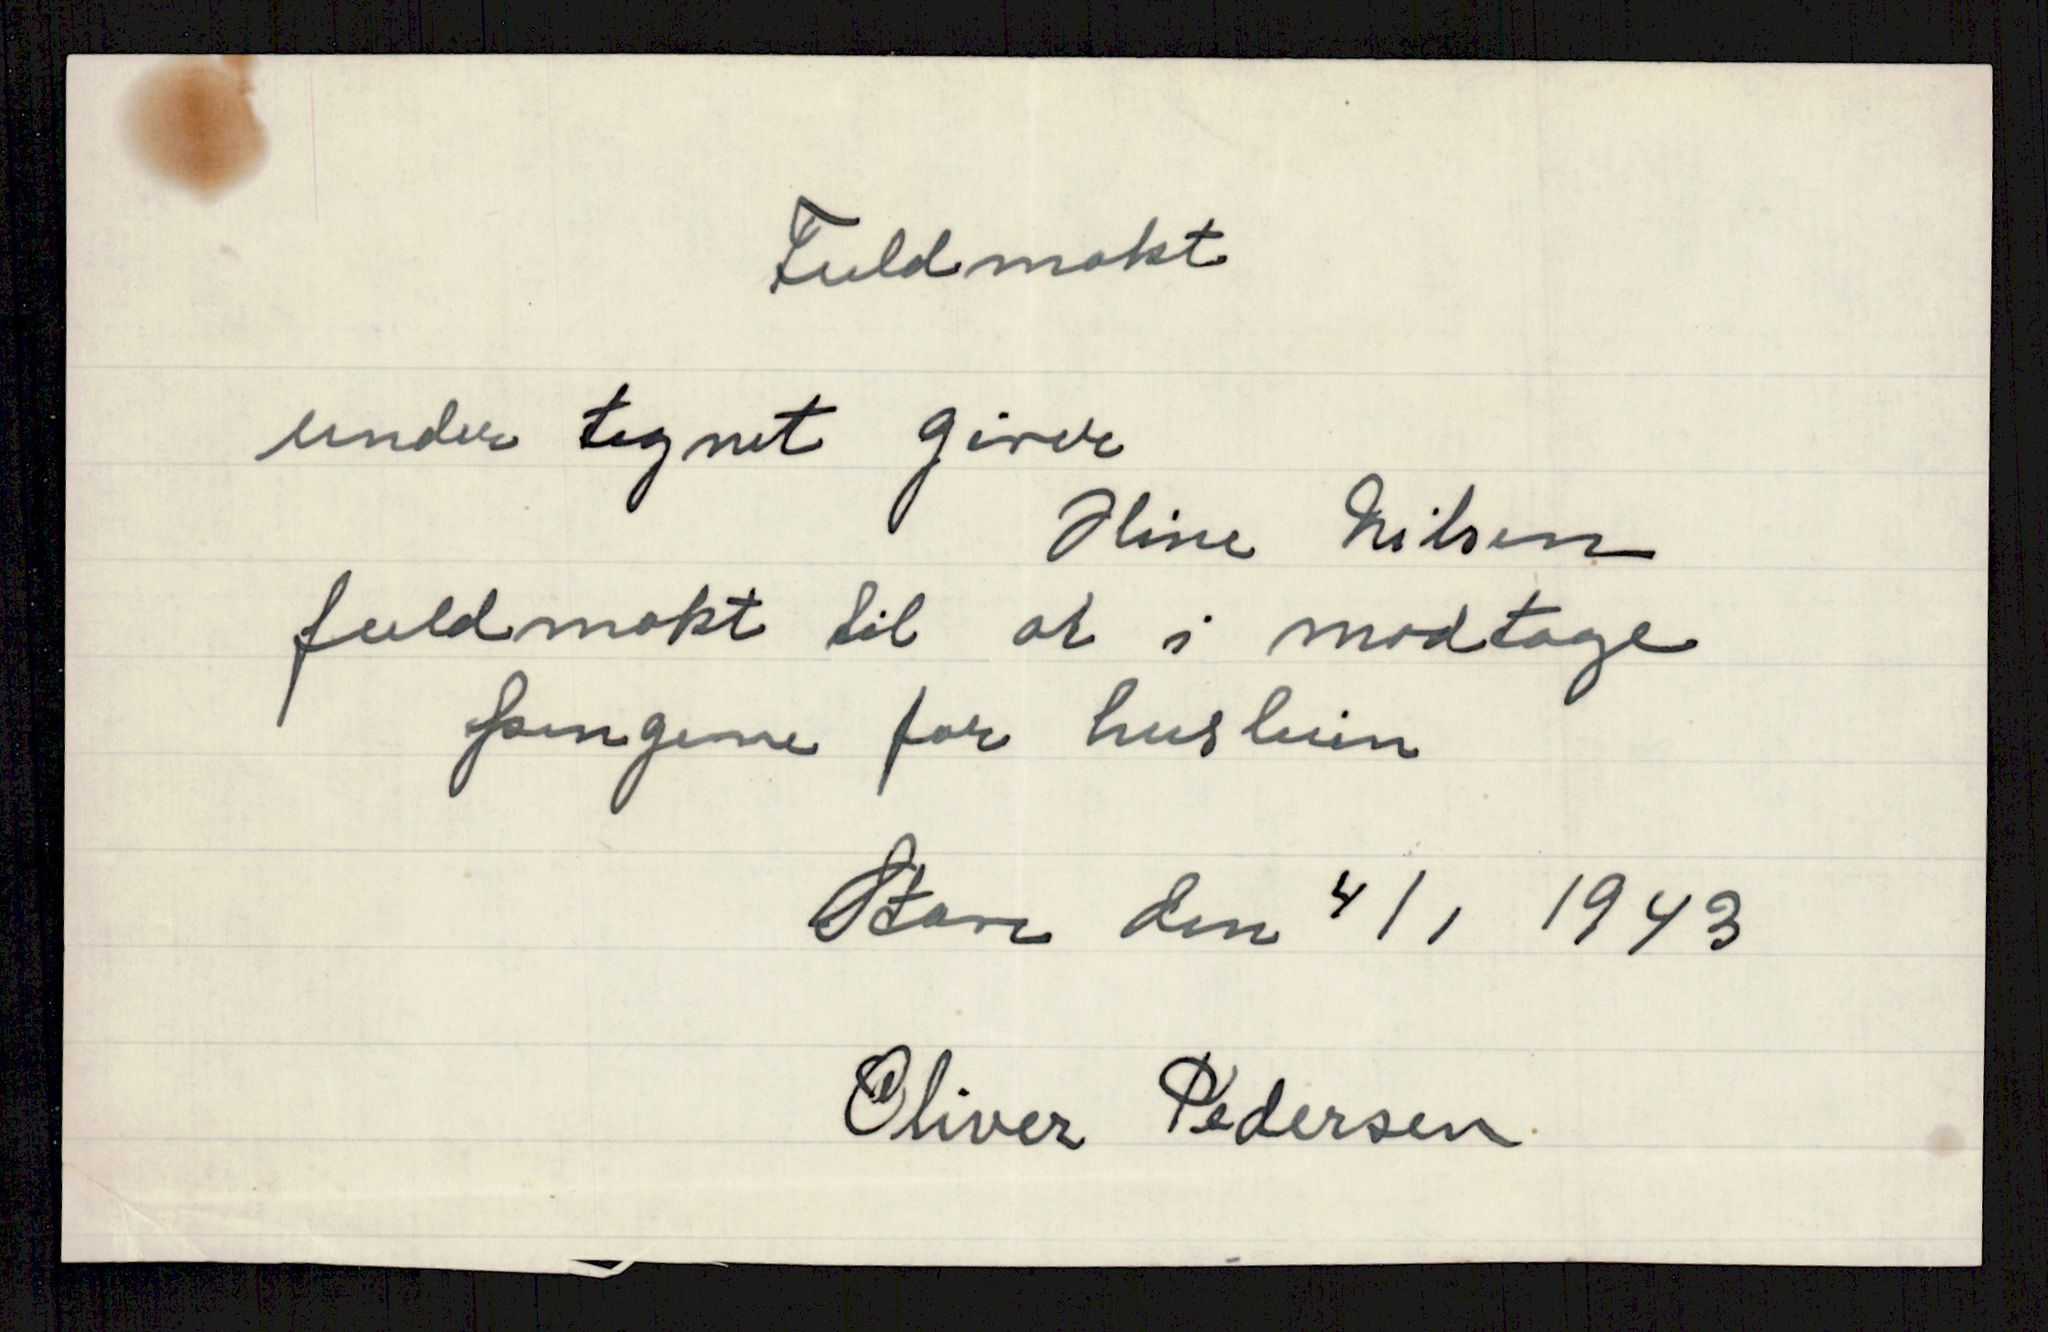 Fuldmakt
under tegnet giver
Hine Nilsen
fuldmakt til at i modtage
pengene for husleien
Stave den 4/1 1943
Oliver Pedersen